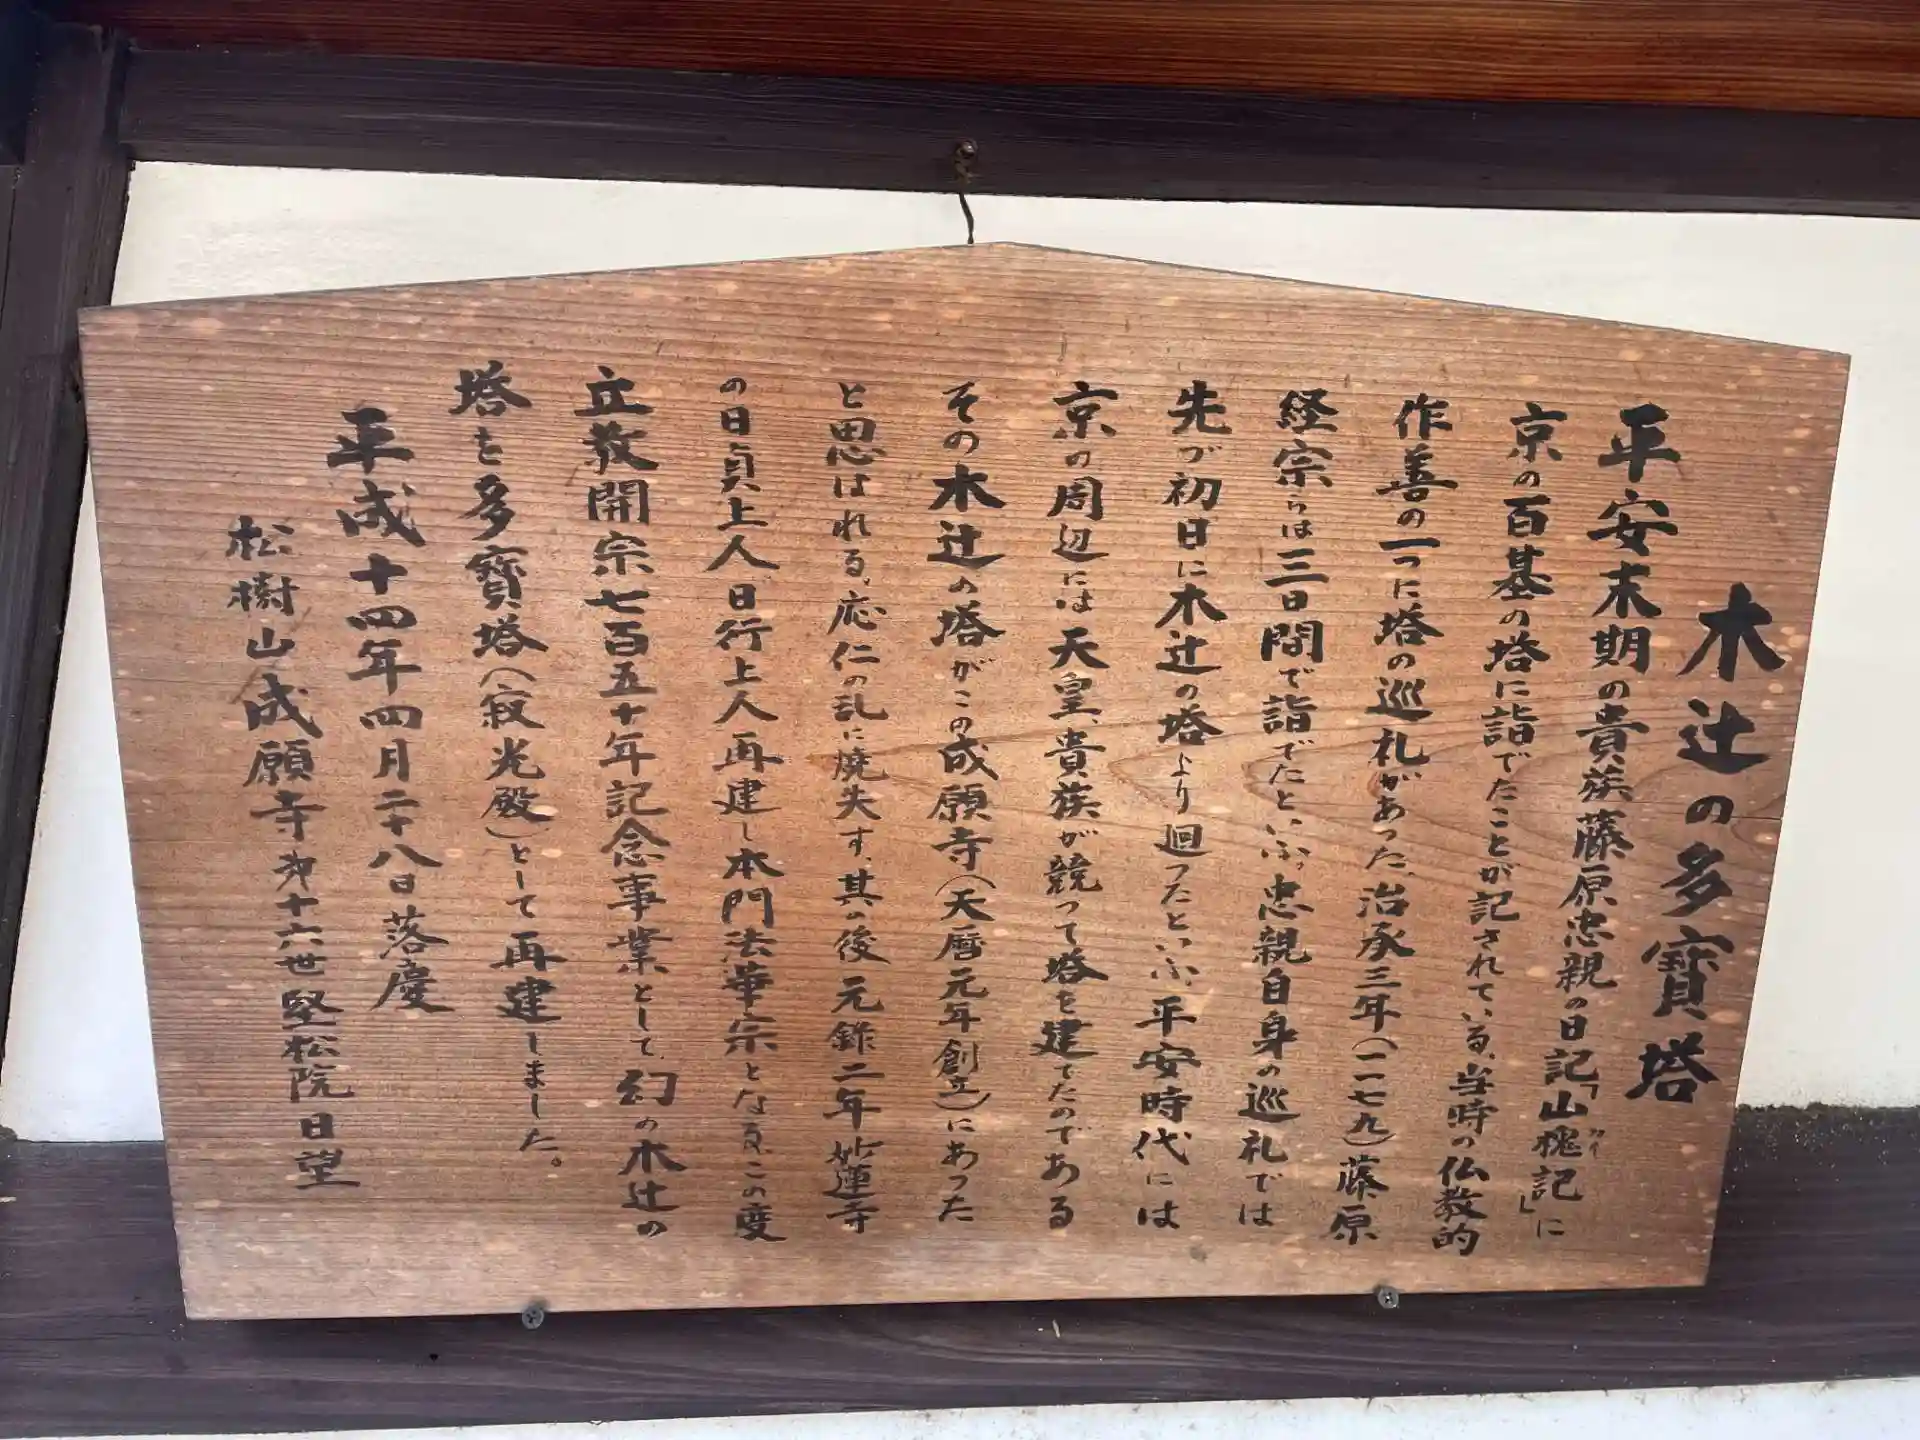 木辻の多寶塔
平安末期の貴族藤原忠親の日記「山槐記」に
カイ
京の百基の塔に詣でたことが記されている、当時の仏教的
作善の一つに塔の巡礼があった、治承三年(一一七九)藤原
経宗らは三日間で詣でたといふ。忠親自身の巡礼では
先づ初日に木辻の塔より廻ったといふ、平安時代には
京の周辺には天皇、貴族が競って塔を建てたのである
その木辻の塔がこの成願寺(天暦元年創立)にあった
と思はれる、応仁の乱に焼失す、其の後元錐二年妙蓮寺
の日貞上人、日行上人再建し本門法華宗となる、この度
立教開宗七百五十年記念事業として、幻の木辻の
塔を多寶塔(寂光殿)として再建しました。
平成十四年四月二十八日落慶
松樹山成願寺第十六世堅松院日望